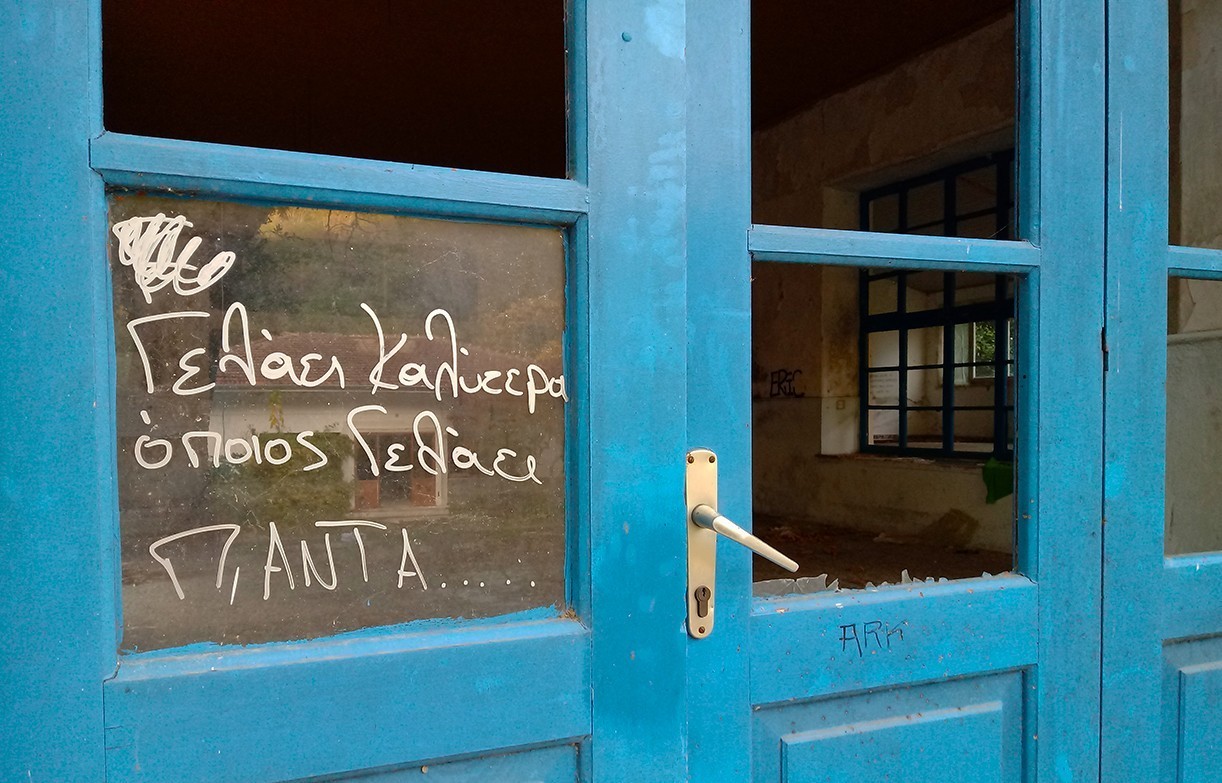 Γελάει καλύτερα
όποιος Γελάει
ΠΆΝΤΑ......
ERIC
ARK